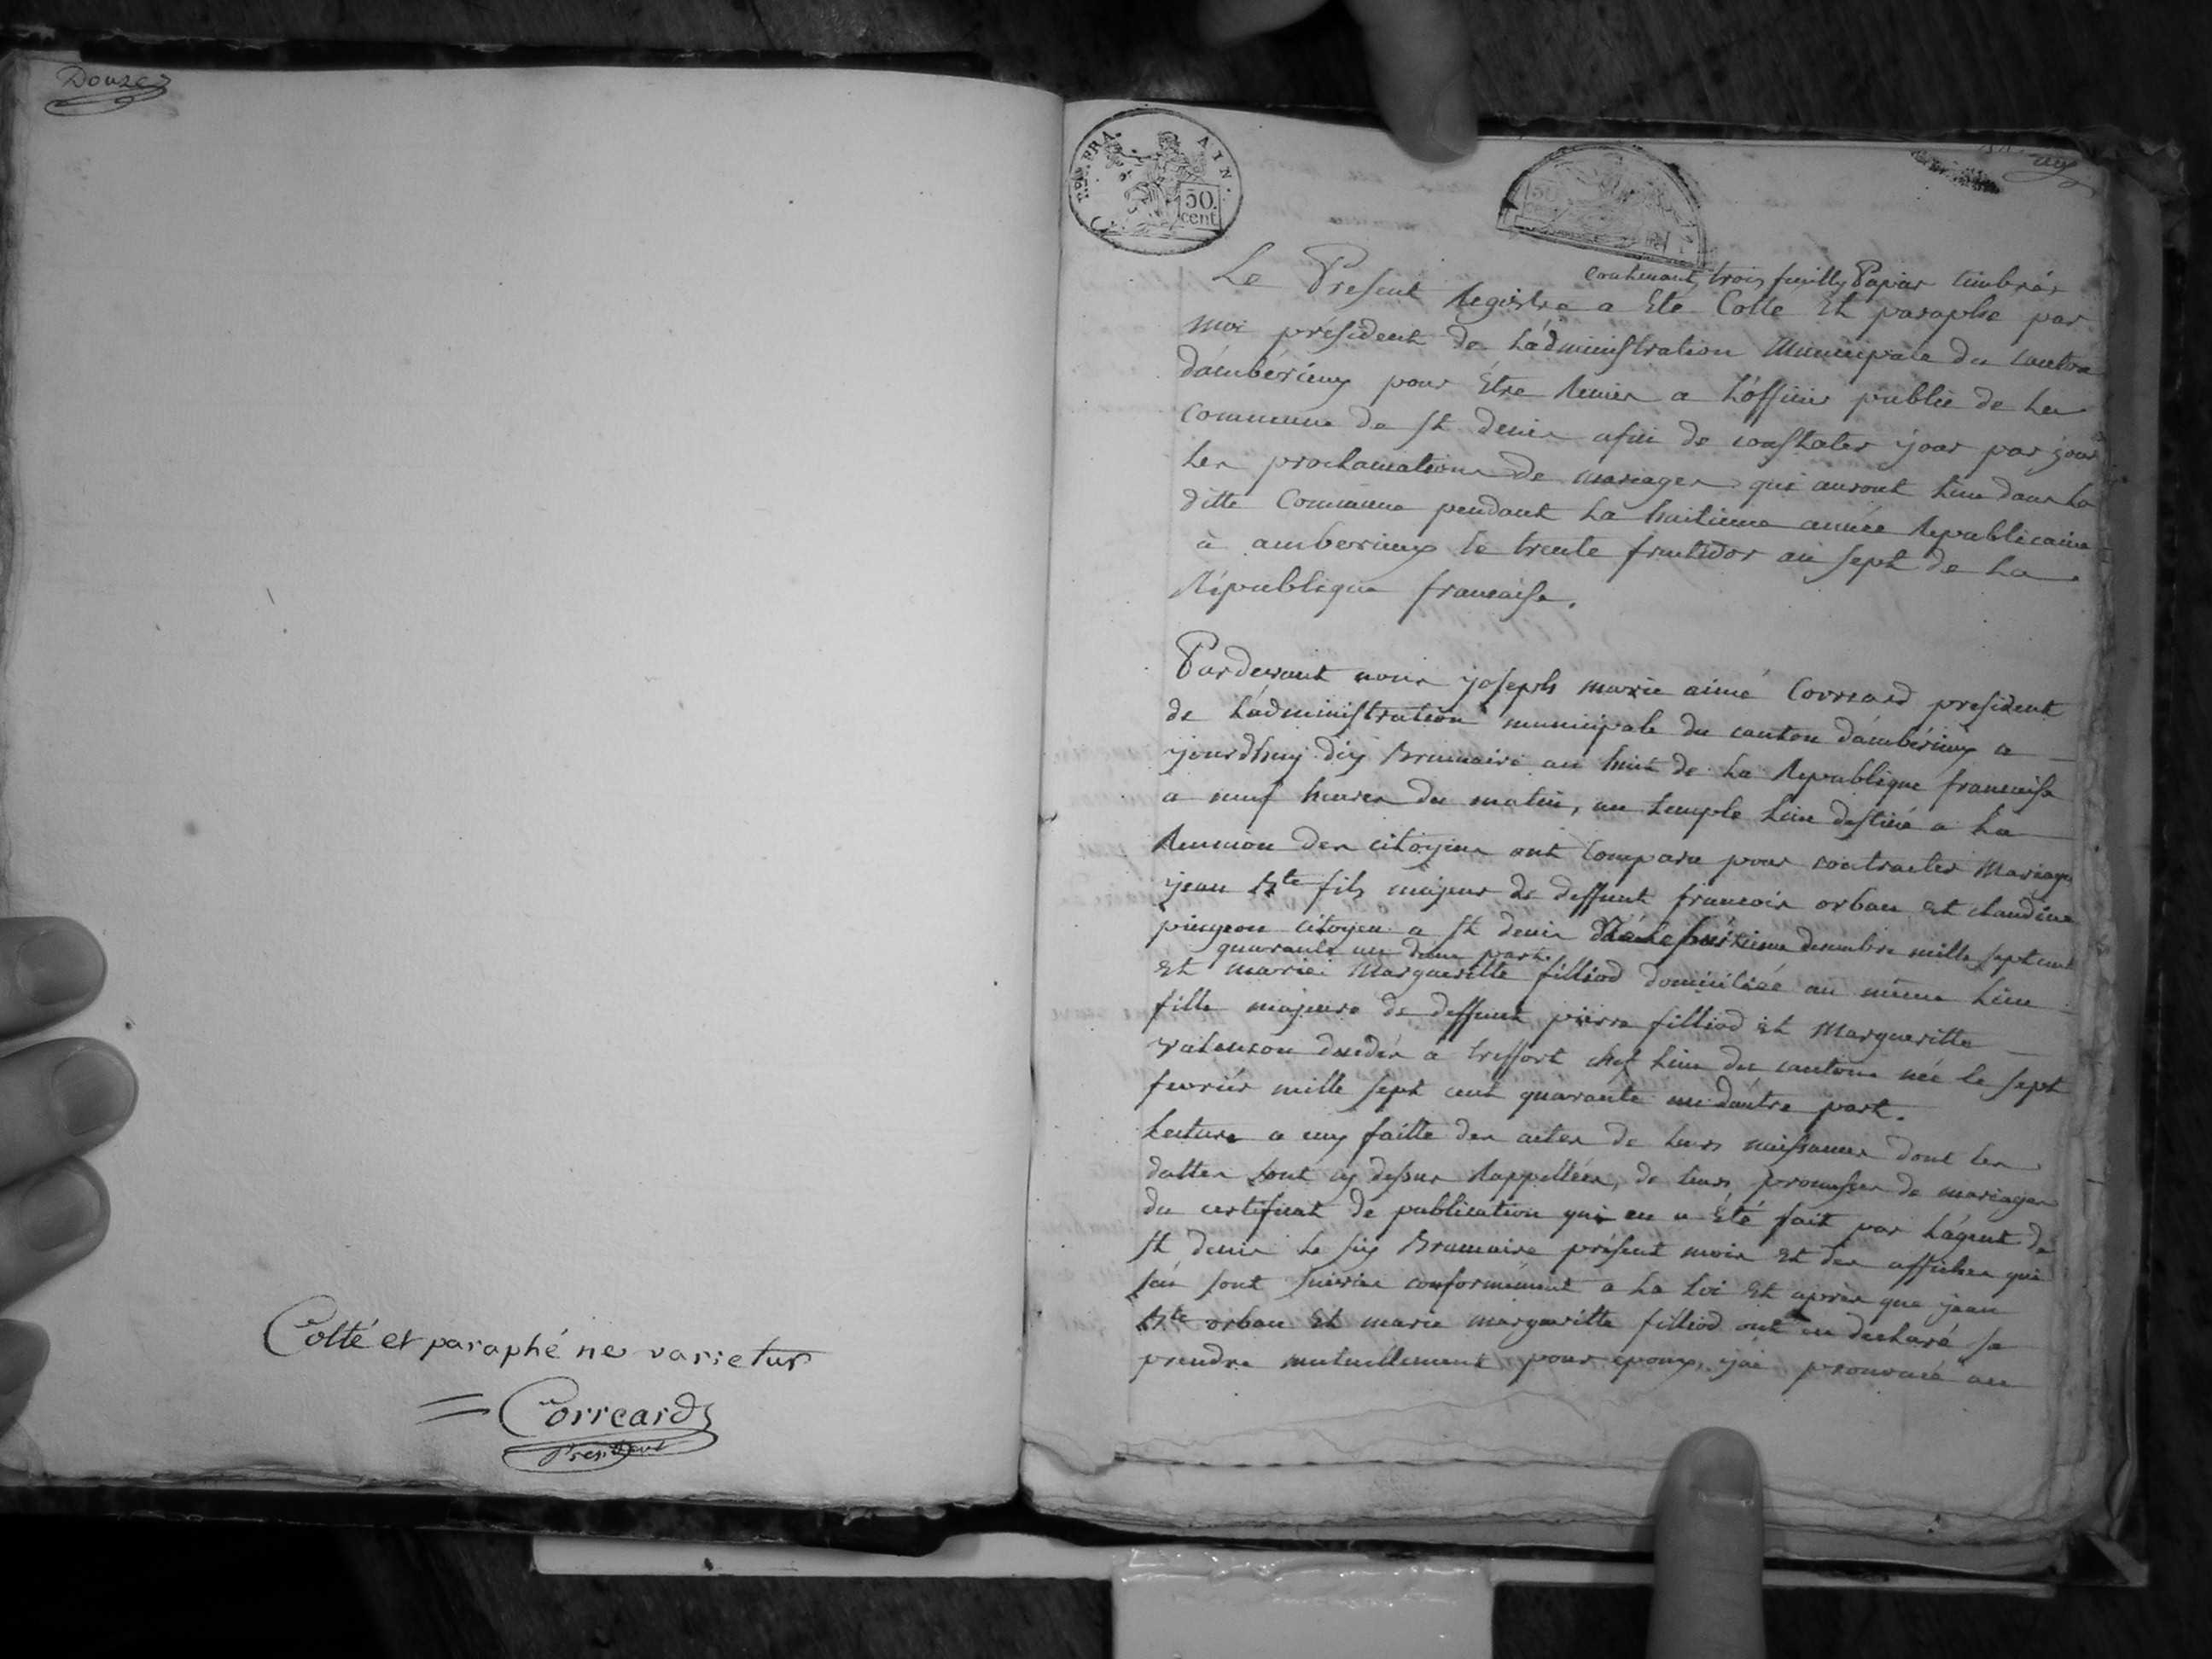 Douze
Cotté et paraphé ne varietur
Correard
Président
REP. FRA
AIN.
50.
cent
contenant trois feuilles Papier timbrés
Le Présent Registre a Eté Cotté Et paraphé par
moi président de L'administration Municipale du canton
d'ambérieux pour Etre Remis a L'officier public de La
Commune de St denis afin de constater jour par jour
Les proclamations de mariages qui auront Lieu dans La
ditte Commune pendant La huitieme année Republicaine
à amberieux le trente fructidor an sept de La
République francaise.
Pardevant nous joseph marie aimé Correard president
de L'administration municipale du canton d'ambérieux a
jourdhuy dix Brumaire an huit de La Republique francaise
a neuf heures du matin, au temple Lieu destiné a La
Reunion des citoyens ont Comparu pour contracter Mariage
jean Bte fils majeur de deffunt francois orban Et claudine
pingeon citoyen a St denis né le huitieme decembre mille sept cent
quarante un d'une part.
Et marie Margueritte filliod domiciliée au même Lieu
fille majeure de deffunt pierre filliod Et Margueritte
valenson decedés a treffort chef Lieu de canton née le sept
fevrier mille sept cent quarante un d'autre part.
Lecture a eux faitte des actes de Leurs naissances dont les
dattes sont cy dessus Rappellées, de Leurs promesses de mariages
du certificat de publication qui en a Eté fait par L'agent de
St denis Le six Brumaire présent mois Et des affiches qui
s'en sont suivies conformement a La Loi Et après que jean
Bte orban Et marie margueritte filliod ont eu declaré se
prendre mutuellement pour epoux, j'ai prononcé au